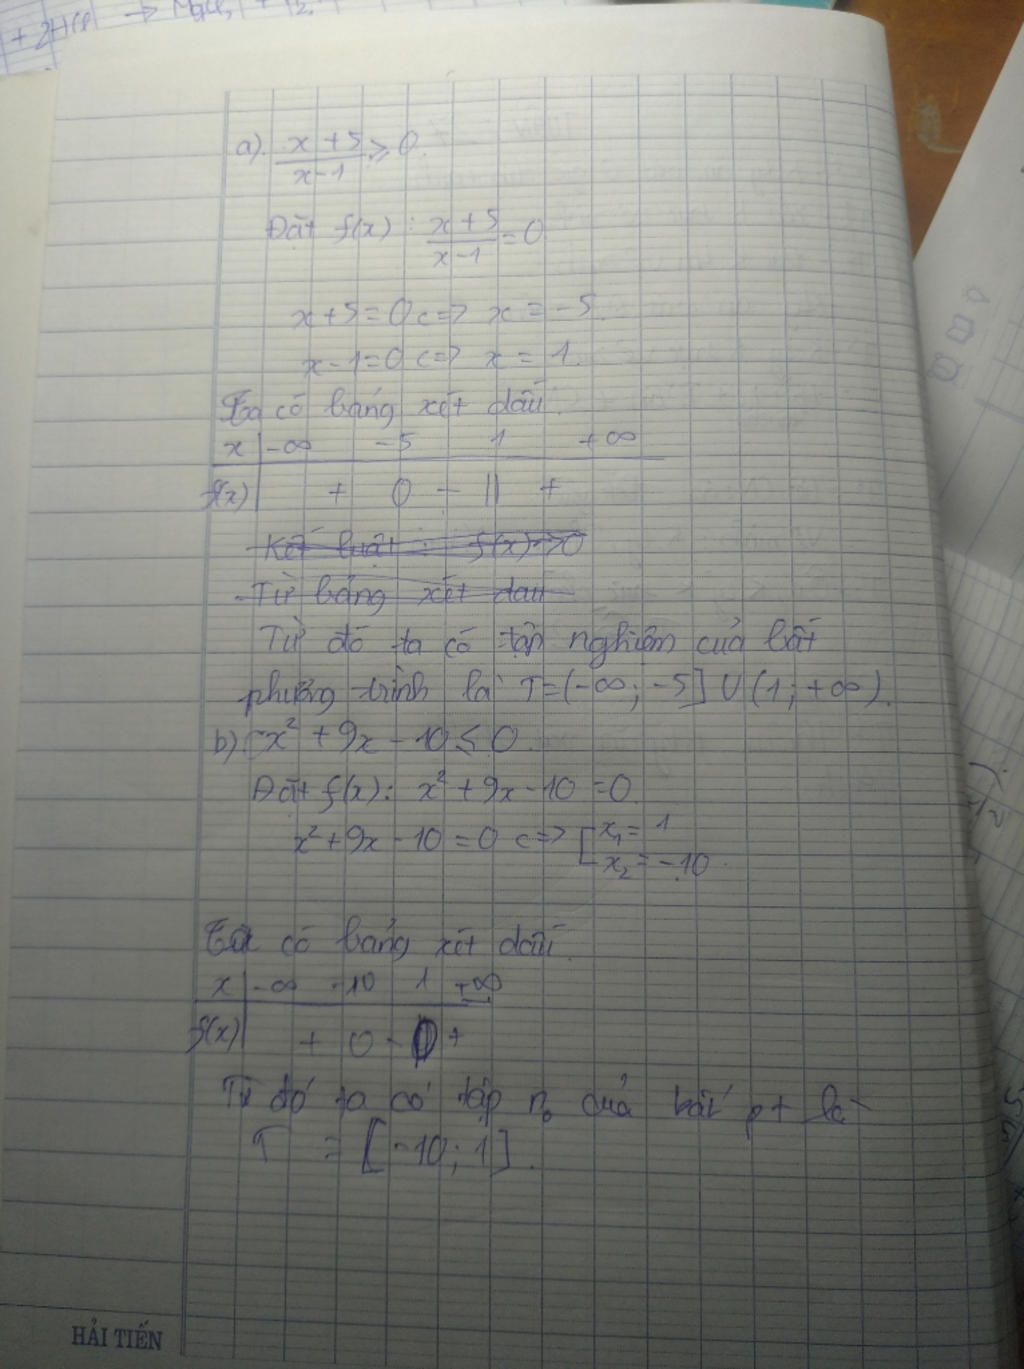 + 2HCl → MgCl₂ + H₂
a). (x + 5)/(x - 1) ≥ 0.
Đặt f(x) : (x + 5)/(x - 1) = 0
x + 5 = 0 <=> x = -5.
x - 1 = 0 <=> x = 1.
Ta có bảng xét dấu.
x | -∞ -5 1 +∞
f(x) | + 0 - || +
Kết luận : f(x) > 0
Từ bảng xét dấu
Từ đó ta có tập nghiệm của bất
phương trình là T = (-∞; -5] U (1; +∞).
b) x² + 9x - 10 ≤ 0.
Đặt f(x): x² + 9x - 10 = 0.
x² + 9x - 10 = 0 <=> [x₁ = 1
x₂ = -10.
Ta có bảng xét dấu.
x | -∞ -10 1 +∞
f(x) | + 0 - 0 +
Từ đó ta có tập n₀ của bất pt là
T = [-10; 1].
HẢI TIẾN